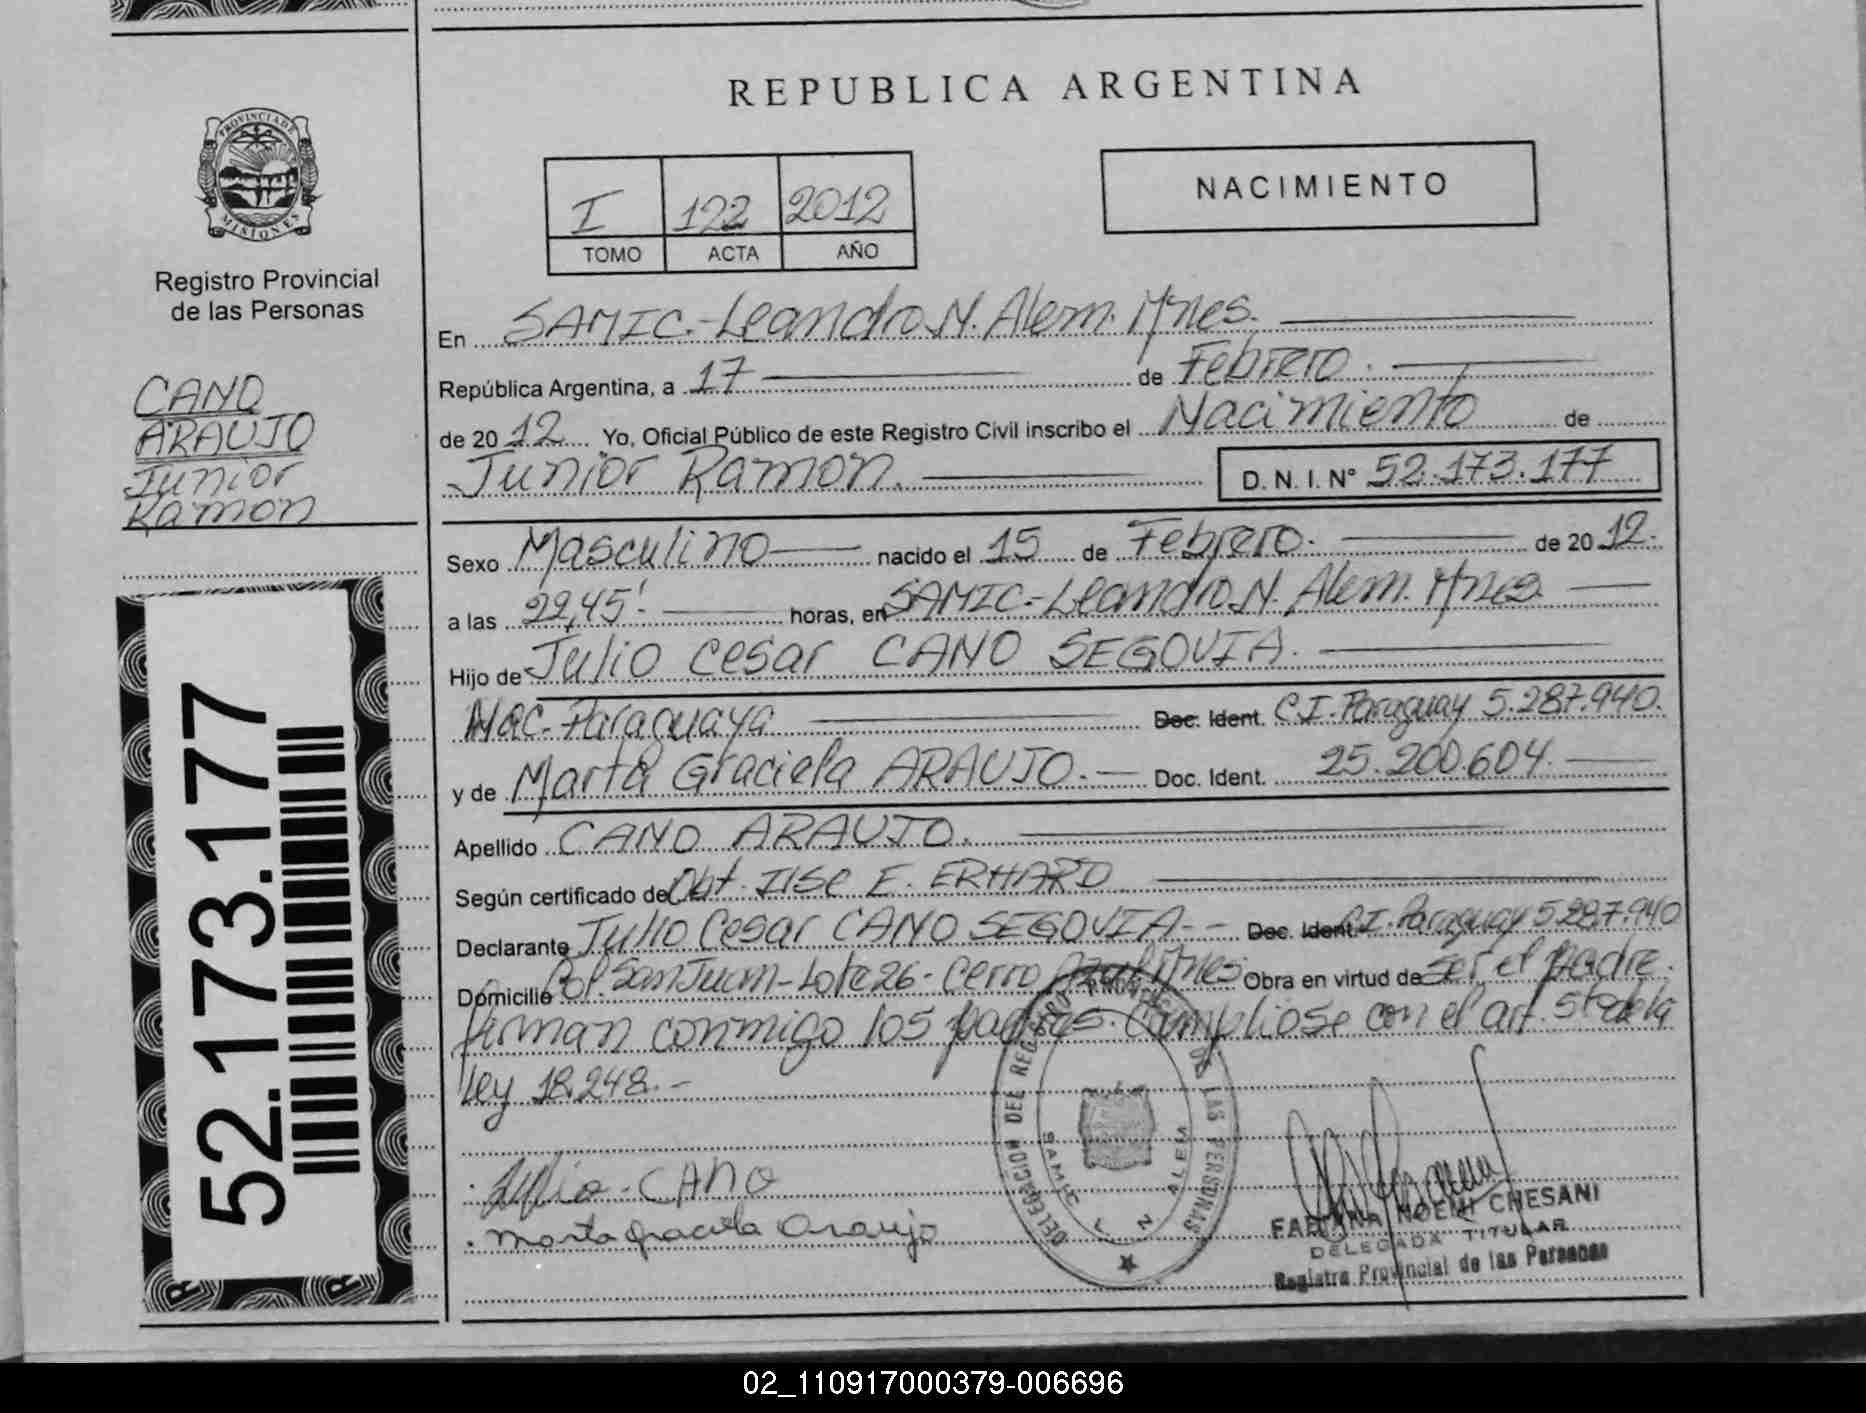 REPUBLICA ARGENTINA
PROVINCIA DE
MISIONES
Registro Provincial
de las Personas
I 122 2012
TOMO ACTA AÑO
NACIMIENTO
CANO
ARAUJO
Junior
Ramon
52.173.177
En SAMIC.-Leandro N. Alem. Mnes.
República Argentina, a 17 de Febrero.
de 2012 Yo, Oficial Público de este Registro Civil inscribo el Nacimiento de
Junior Ramon. D. N. I. N° 52.173.177
Sexo Masculino nacido el 15 de Febrero. de 2012.
a las 22,45'. horas, en SAMIC.-Leandro N. Alem. Mnes.
Hijo de Julio Cesar CANO SEGOVIA.
Nac. Paraguaya Doc. Ident. C.I. Paraguay 5.287.940.
y de Marta Graciela ARAUJO.- Doc. Ident. 25.200.604.
Apellido CANO ARAUJO.
Según certificado de Obt. Ilse E. ERHARD
Declarante Julio Cesar CANO SEGOVIA-- Doc. Ident. C.I. Paraguay 5.287.940
Domicilio Col. San Juan-Lote 26- Cerro Azul Mnes. Obra en virtud de ser el padre.
firman conmigo los padres. Cumpliose con el art. 5to de la
Ley 18.248.-
Julio-CANO
Marta Graciela Araujo
DELEGACION DEL REGISTRO DE LAS PERSONAS
SAMIC L N ALEM
FABIANA NOEMI CHESANI
DELEGADA TITULAR
Registro Provincial de las Personas
02_110917000379-006696